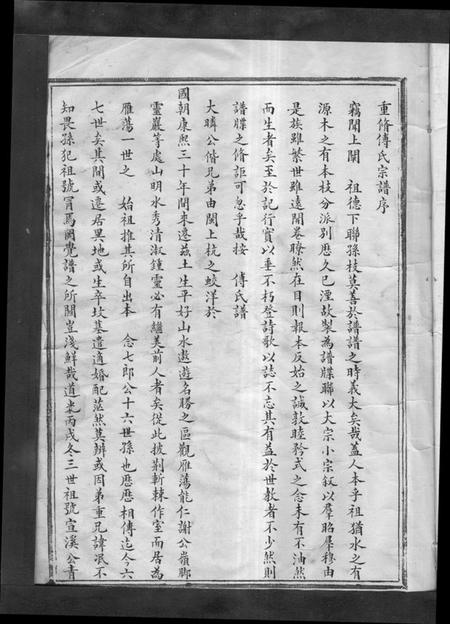 重脩傅氏宗譜序
竊聞上聞　祖德下聯孫枝莫善於譜譜之時義大矣哉蓋人本乎祖猶水之有
源木之有本枝分派别歷久已湮故製為譜牒聯以大宗小宗叙以羣昭羣穆由
是族雖繁世雖遠開卷瞭然在目則報本反始之誠敦睦矜式之念未有不油然
而生者矣至於記行實以垂不朽登詩歌以誌不忘其有益於世教者不少然則
譜牒之脩詎可忽乎哉按　傅氏譜
大疄公偕兄弟由閩上杭之蛟洋於
國朝康熙三十年間來遷兹土生平好山水遨遊名勝之區觀雁蕩能仁謝公嶺脚
靈巖等處山明水秀清淑鍾靈必有繼美前人者矣從此披荆斬棘作室而居為
雁蕩一世之　始祖推其所自出本　念七郎公十六世孫也歷歷相傳迄今六
七世矣其間或遷居異地或生卒坟墓遺適婚配茫然莫辨或因弟重兄諱冺不
知畏孫犯祖號冐焉罔覺譜之所關豈淺鮮哉道光丙戌冬三世祖號宣溪公青